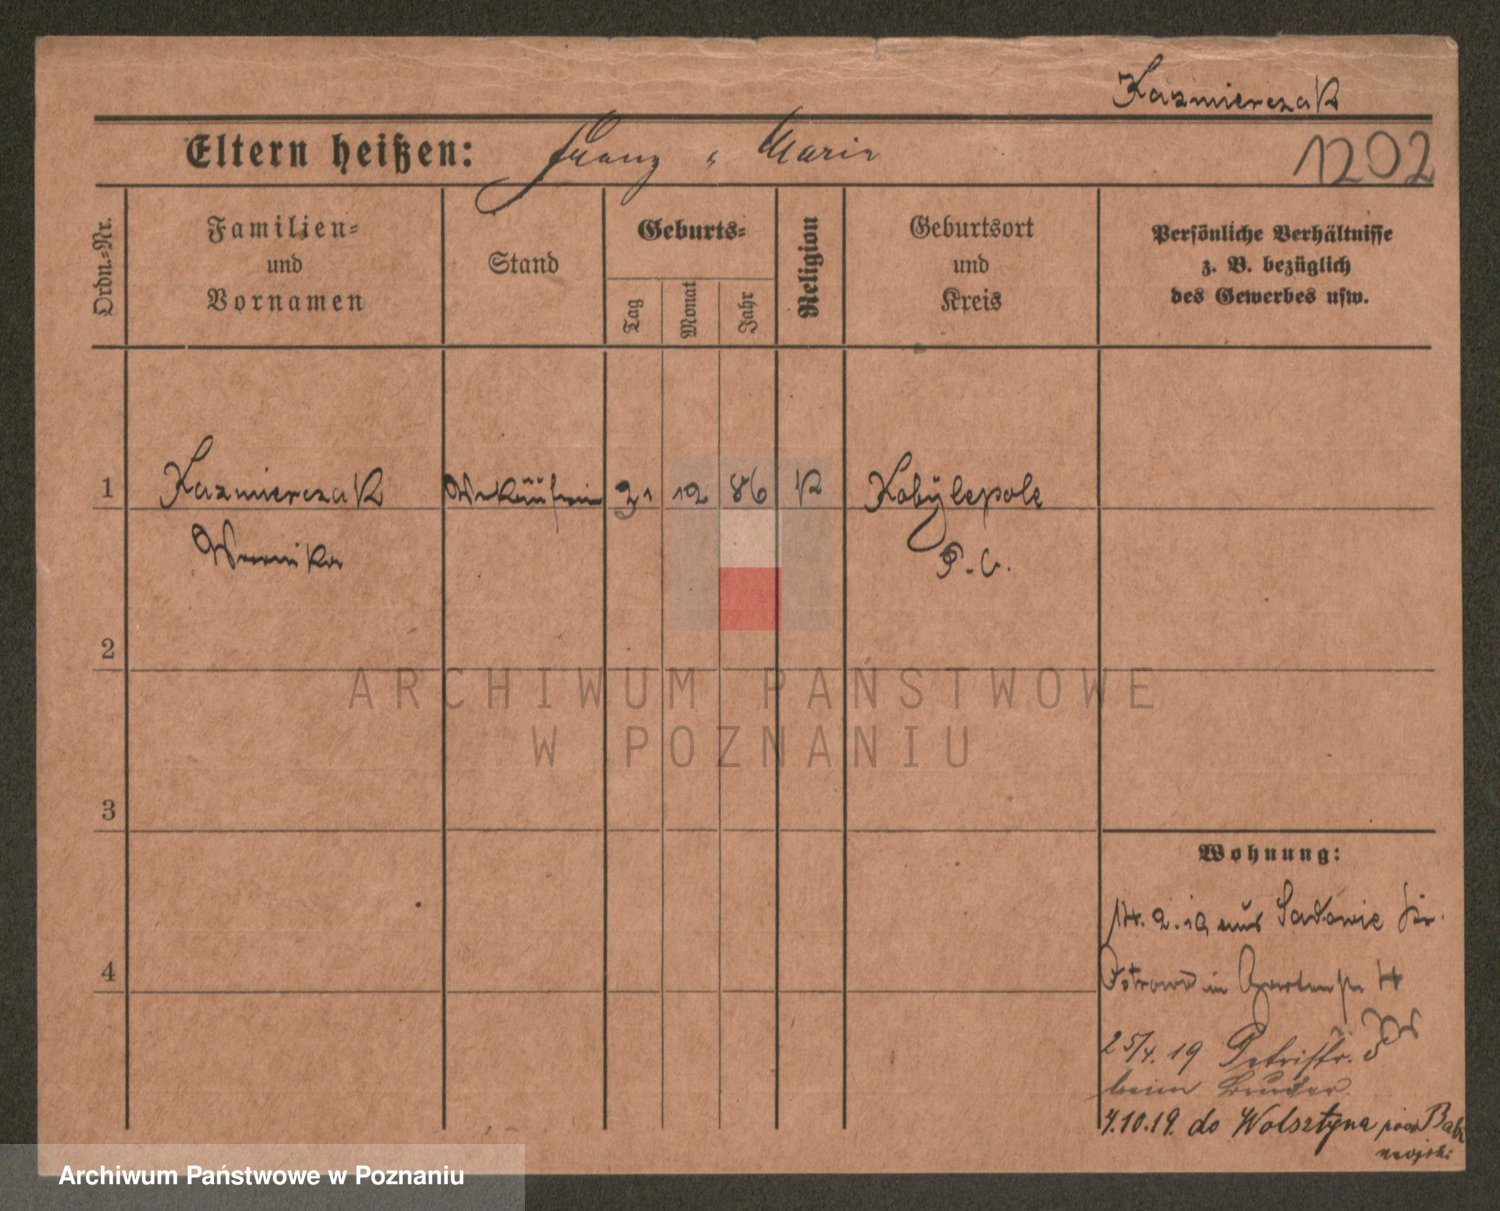 Kazmierczak
Eltern heißen: Franz u Maria
1202
Ordn.-Nr.
Familien-
und
Vornamen
Stand
Geburts-
Tag
Monat
Jahr
Religion
Geburtsort
und
Kreis
Persönliche Verhältnisse
z. B. bezüglich
des Gewerbes usw.
1 Kazmierczak Verkäuferin 31 12 86 K Kobylepole
P. O.
2
ARCHIWUM PAŃSTWOWE
W POZNANIU
3
Wohnung:
14. 2. 19 aus Sadowie Kr.
4
Ostrowo in Gartenstr 14
25/4. 19 Petristr. 5
beim Bruder.
4.10.19. do Wolsztyna pow Bab
mojski
Archiwum Państwowe w Poznaniu